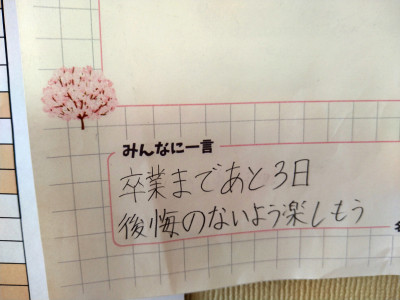 みんなに一言
卒業まであと3日
後悔のないよう楽しもう